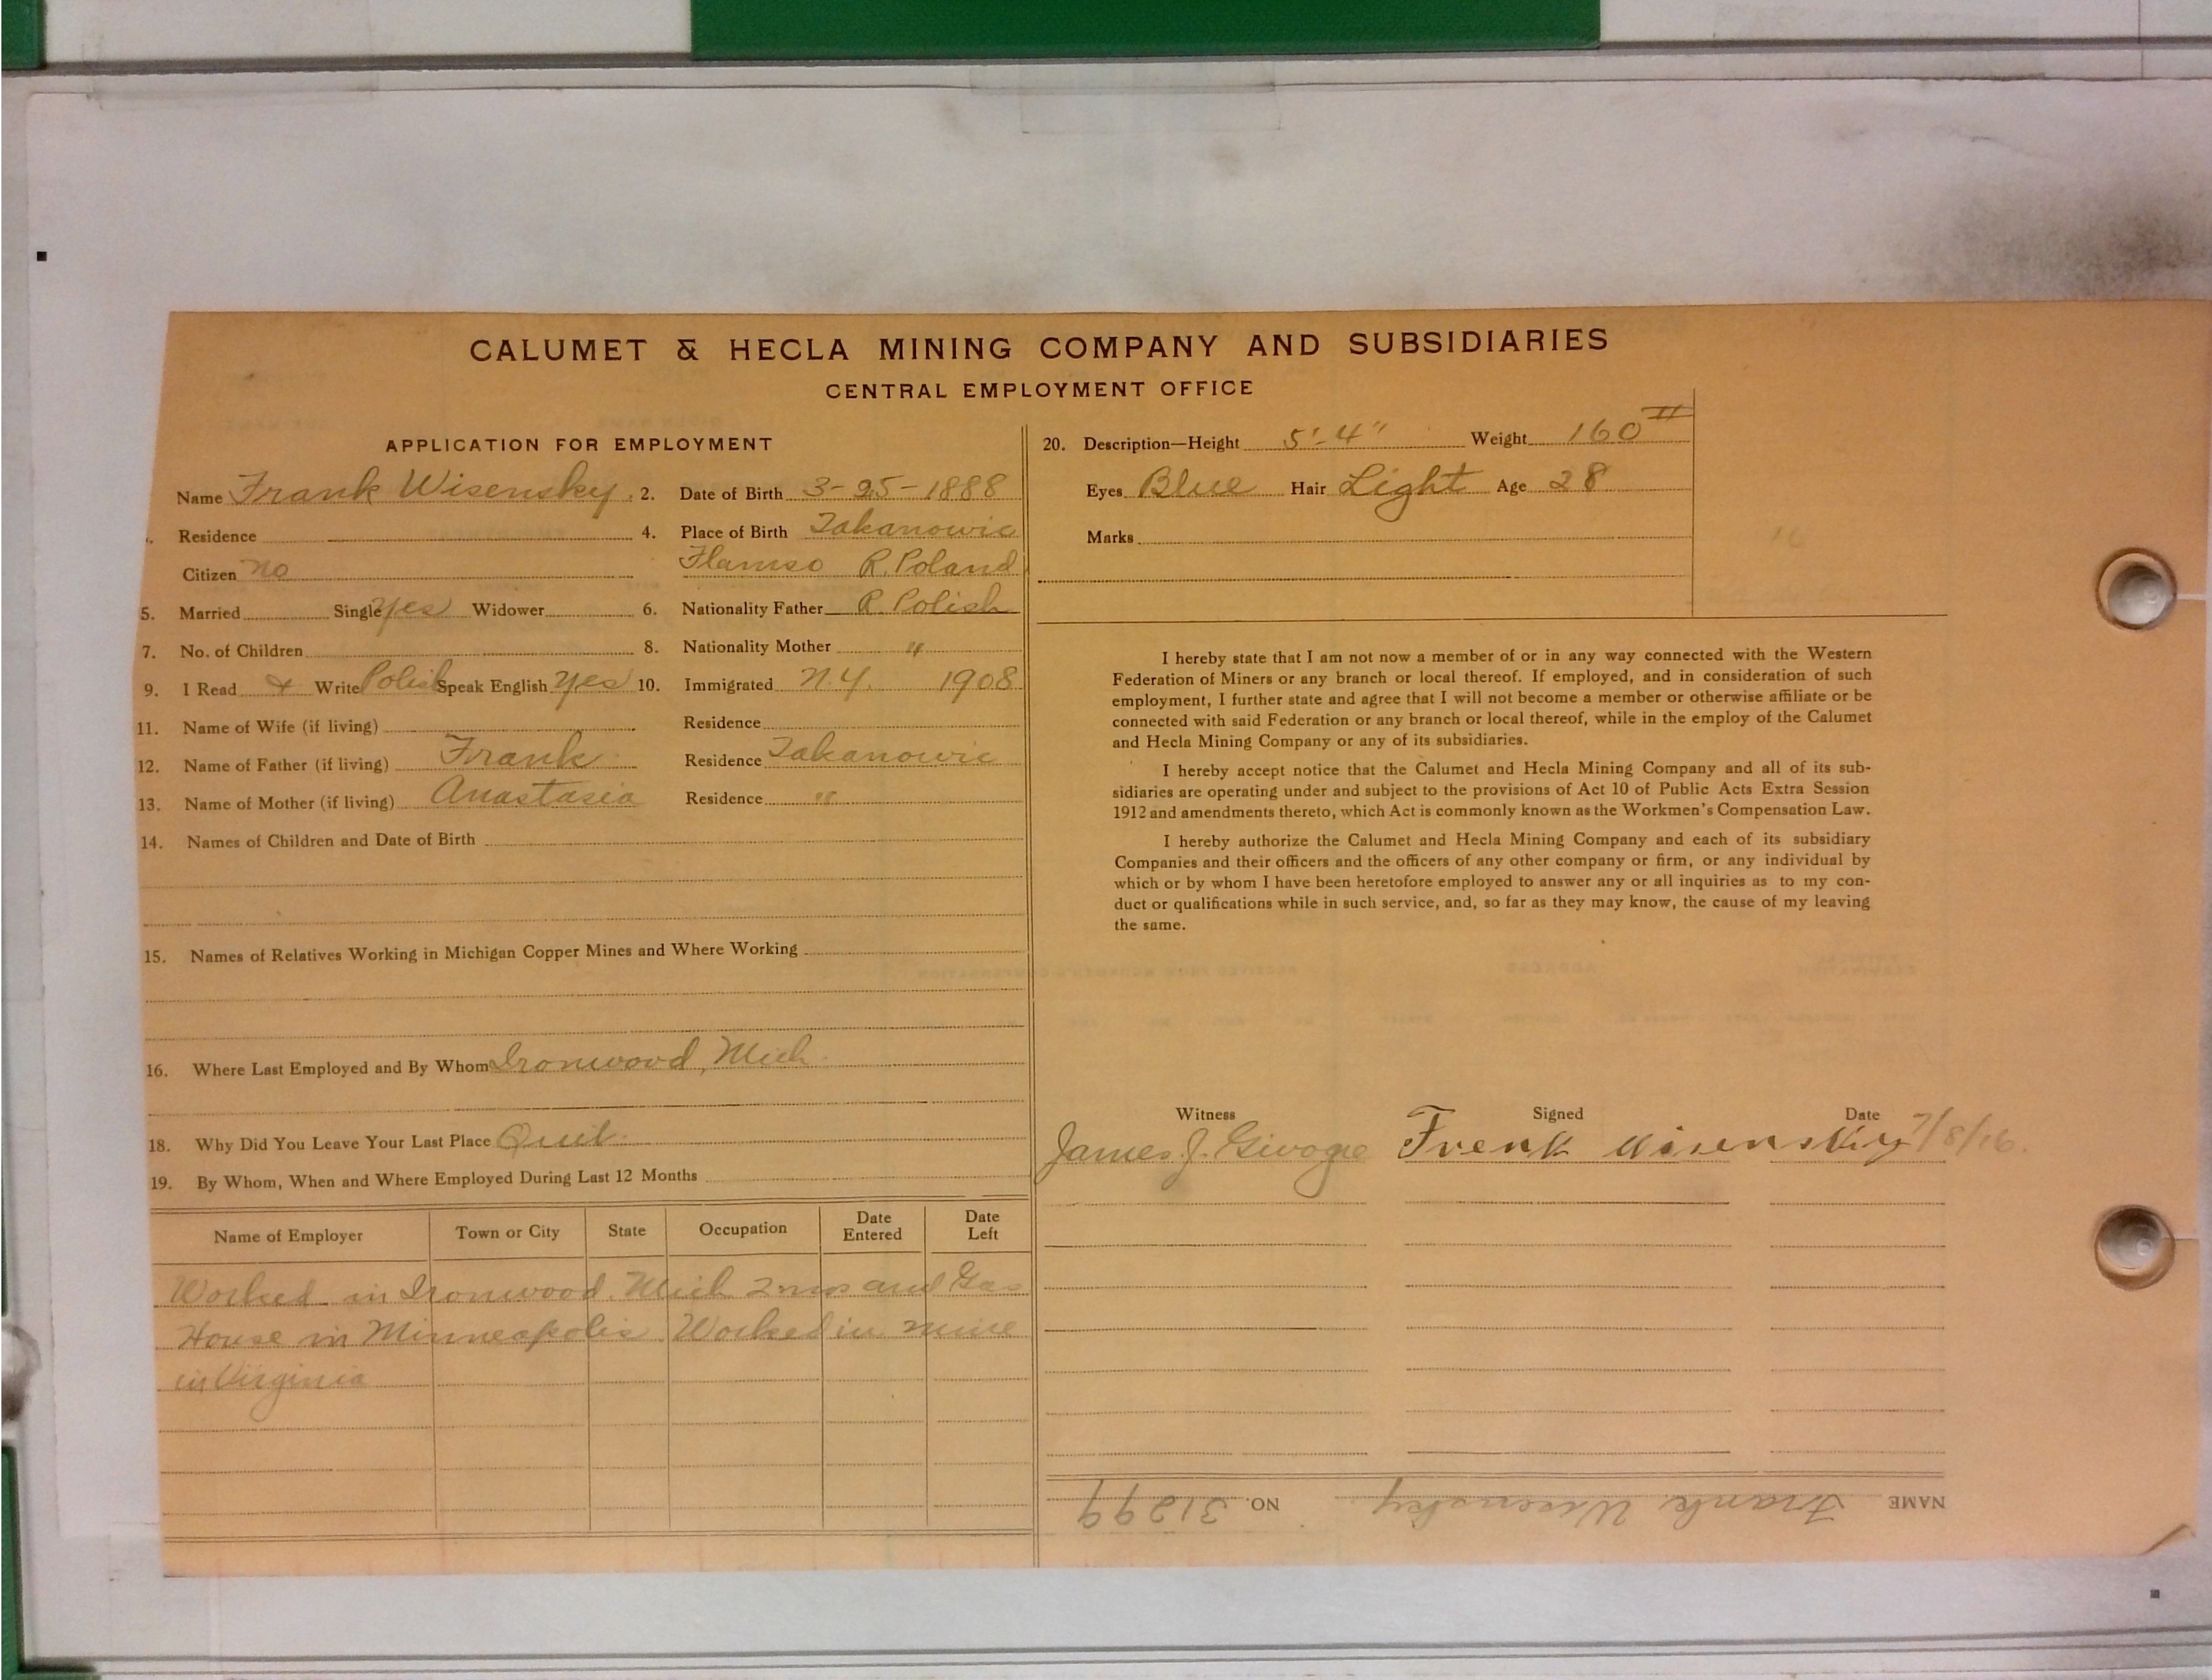 CALUMET & HECLA MINING COMPANY AND SUBSIDIARIES
CENTRAL EMPLOYMENT OFFICE
APPLICATION FOR EMPLOYMENT
Name Frank Wisensky 2. Date of Birth 3-25-1888
Residence 4. Place of Birth Zakanowic
Citizen no R. Poland
5. Married Single yes Widower 6. Nationality Father R. Polish
7. No. of Children 8. Nationality Mother "
9. I Read & Write Polish Speak English yes 10. Immigrated N.Y. 1908
11. Name of Wife (if living) Residence
12. Name of Father (if living) Frank Residence Zakanowic
13. Name of Mother (if living) Anastasia Residence "
14. Names of Children and Date of Birth
15. Names of Relatives Working in Michigan Copper Mines and Where Working
16. Where Last Employed and By Whom Ironwood, Mich
18. Why Did You Leave Your Last Place Quit
19. By Whom, When and Where Employed During Last 12 Months
Name of Employer Town or City State Occupation Date Entered Date Left
Worked in Ironwood. Mich 2 mos and Gas
House in Minneapolis Worked in mine
in Virginia
20. Description—Height 5'-4" Weight 160
Eyes Blue Hair Light Age 28
Marks
I hereby state that I am not now a member of or in any way connected with the Western
Federation of Miners or any branch or local thereof. If employed, and in consideration of such
employment, I further state and agree that I will not become a member or otherwise affiliate or be
connected with said Federation or any branch or local thereof, while in the employ of the Calumet
and Hecla Mining Company or any of its subsidiaries.
I hereby accept notice that the Calumet and Hecla Mining Company and all of its sub-
sidiaries are operating under and subject to the provisions of Act 10 of Public Acts Extra Session
1912 and amendments thereto, which Act is commonly known as the Workmen's Compensation Law.
I hereby authorize the Calumet and Hecla Mining Company and each of its subsidiary
Companies and their officers and the officers of any other company or firm, or any individual by
which or by whom I have been heretofore employed to answer any or all inquiries as to my con-
duct or qualifications while in such service, and, so far as they may know, the cause of my leaving
the same.
Witness Signed Date
James J. Frenk Wisensky 7/8/16.
NAME Frank Wisensky NO. 31299